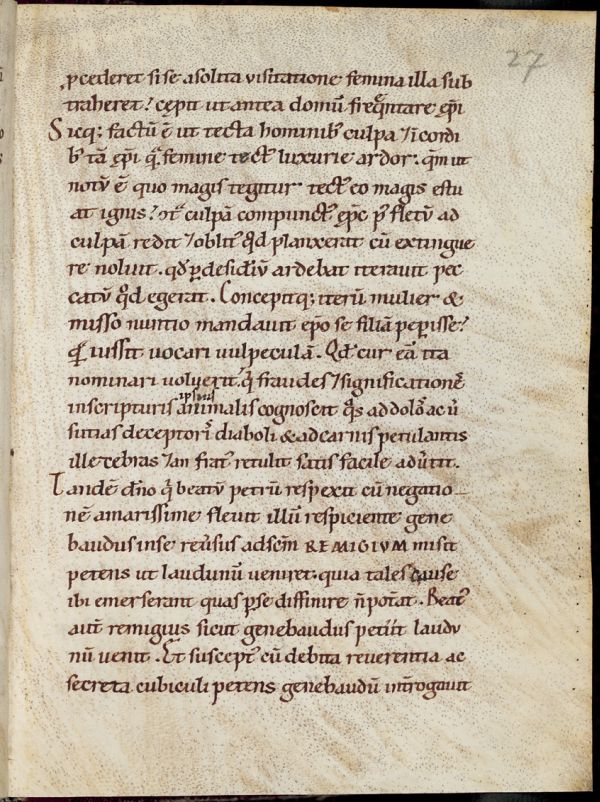 27
pcederet si se a solita visitatione femina illa sub
traheret? cępit ut antea domū freq̄ntare ep̄i
Sicq; factū ē ut tecta hominib' culpa ⁊ in cordi
b' tā ep̄i q̄ femine tect' luxurie ardor. qm̄ ut
notū ē quo magis tegitur tect' eo magis estu
at ignis? culpā compunct' ep̄c p' fletū ad
culpā redit ⁊ oblit' qd̄ planxerat cū extingue
re noluit. qd̄ p desidiū ardebat iteravit pec
catū qd̄ egerat. Concepitq; iterū mulier &
misso nuntio mandavit ep̄o se filiā peperisse?
iussit vocari vulpeculā. Qd̄ cur eā ita
nominari voluerit q̄ fraudes ⁊ significationē
ipsius
in scripturis animalis cognoscit q̄s ad dolō ac v
sutias deceptorī diaboli & ad carnis petulantis
illecebras ⁊ an frat' retulit satis facile advtit.
Tandē dn̄o q̄ beatū petrū respexit cū negatio
nē amarissime flevit illū respiciente gene
baudus in se rev̄sus ad scm̄ REMIGIVM misit
petens ut laudunū veniret. quia tales cause
ibi emerserant quas p se diffinire n̄ pot'at. Beat'
aut̄ remigius sicut genebaudus petiit laudu
nū venit. Et suscept' cū debita reverentia ac
secreta cubiculi petens genebaudū int̄rogavit